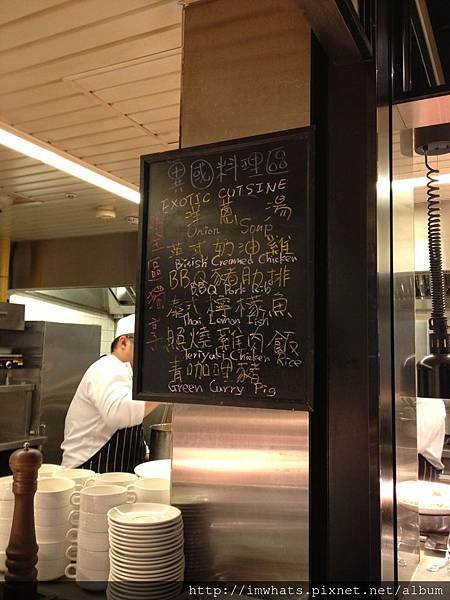 異國料理區
EXOTIC CUISINE
洋蔥湯
Onion Soup
英式奶油雞
Birish Creamed Chicken
BBQ豬肋排
BBQ Pork Rib
泰式檸檬魚
Thai Lemon Fish
照燒雞肉飯
Teriyaki Chicken Rice
青咖哩豬
Green Curry Pig
區
http://imwhats.pixnet.net/album